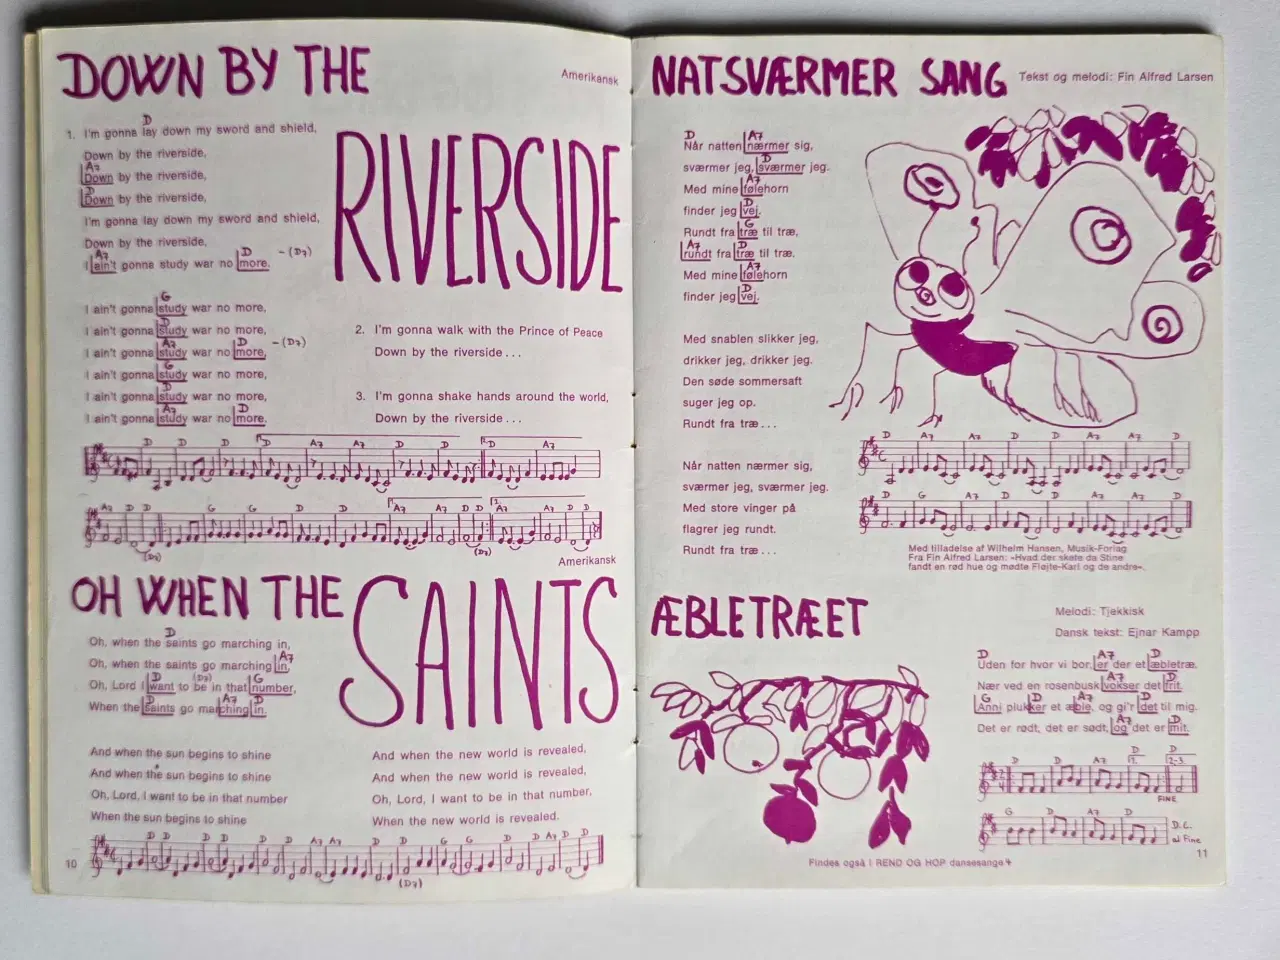 DOWN BY THE
Amerikansk
RIVERSIDE
D
1. I'm gonna lay down my sword and shield,
Down by the riverside,
A7
Down by the riverside,
D
Down by the riverside,
I'm gonna lay down my sword and shield,
Down by the riverside,
A7 D – (D7)
I ain't gonna study war no more.
G
I ain't gonna study war no more,
D
I ain't gonna study war no more,
A7 D – (D7)
I ain't gonna study war no more,
G
I ain't gonna study war no more,
D
I ain't gonna study war no more,
A7 D
I ain't gonna study war no more.
2. I'm gonna walk with the Prince of Peace
Down by the riverside...
3. I'm gonna shake hands around the world,
Down by the riverside...
D D D 1. D A7 A7 D D 2. D A7
A7 D D D G G D D 1. A7 A7 D D 2. A7 A7 D D
(D7) (D7)
Amerikansk
OH WHEN THE
SAINTS
D
Oh, when the saints go marching in,
A7
Oh, when the saints go marching in,
D (D7) G
Oh, Lord I want to be in that number,
D A7 D
When the saints go marching in.
And when the sun begins to shine
And when the sun begins to shine
Oh, Lord, I want to be in that number
When the sun begins to shine
And when the new world is revealed,
And when the new world is revealed,
Oh, Lord, I want to be in that number,
When the new world is revealed.
D D D D D D A7 A7 D D G G D D A7 D D
(D7)
10
NATSVÆRMER SANG
Tekst og melodi: Fin Alfred Larsen
D A7
Når natten nærmer sig,
D
sværmer jeg, sværmer jeg.
A7
Med mine følehorn
D
finder jeg vej.
G
Rundt fra træ til træ,
A7 D
rundt fra træ til træ.
A7
Med mine følehorn
D
finder jeg vej.
Med snablen slikker jeg,
drikker jeg, drikker jeg.
Den søde sommersaft
suger jeg op.
Rundt fra træ...
Når natten nærmer sig,
sværmer jeg, sværmer jeg.
Med store vinger på
flagrer jeg rundt.
Rundt fra træ...
D A7 A7 D D A7 A7 D
D G A7 D D A7 A7 D
Med tilladelse af Wilhelm Hansen, Musik-Forlag
Fra Fin Alfred Larsen: »Hvad der skete da Stine
fandt en rød hue og mødte Fløjte-Karl og de andre«.
ÆBLETRÆET
Melodi: Tjekkisk
Dansk tekst: Ejnar Kampp
D A7 D
Uden for hvor vi bor, er der et æbletræ.
A7 D
Nær ved en rosenbusk vokser det frit.
G D A7 D
Anni plukker et æble, og gi'r det til mig.
A7 D
Det er rødt, det er sødt, og det er mit.
D D A7 D 1. D 2.-3.
FINE
G D A7 D D.C.
al Fine
Findes også i REND OG HOP dansesange 4
11